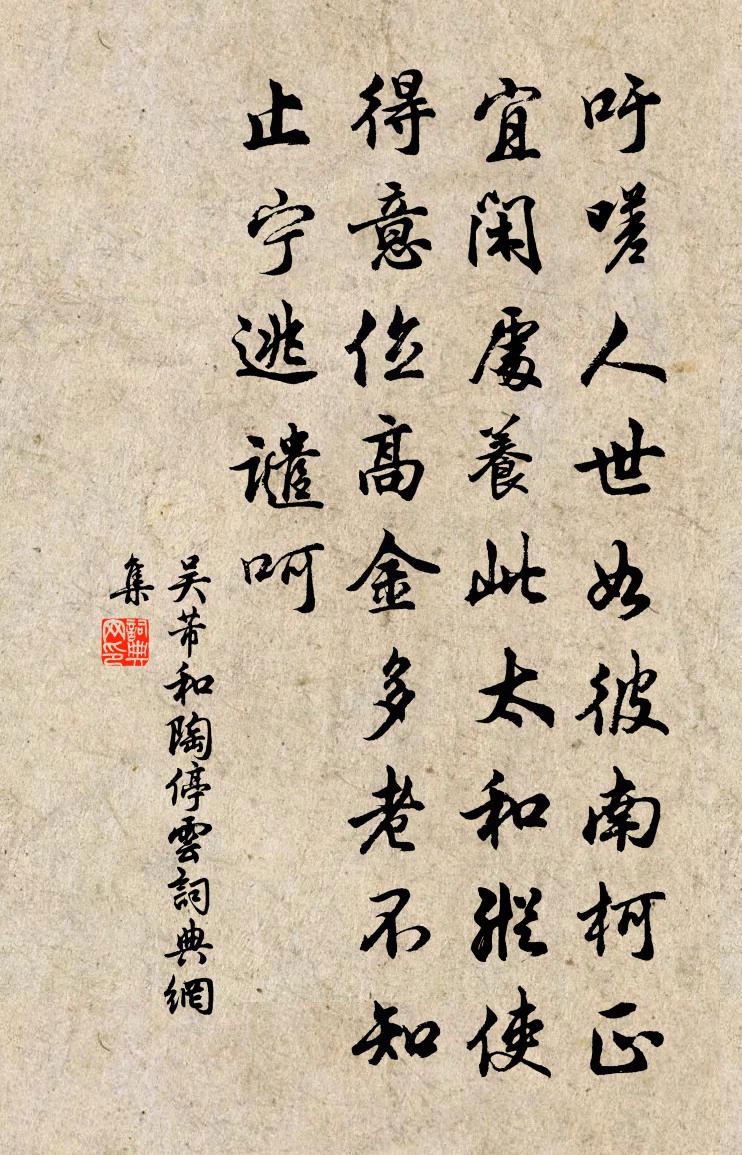 吁嗟人世如彼南柯正
宜閑處養此太和縱使
得意位高金多老不知
止宁逃譴呵
吴芾和陶停雲詞典網
集
詞典网印